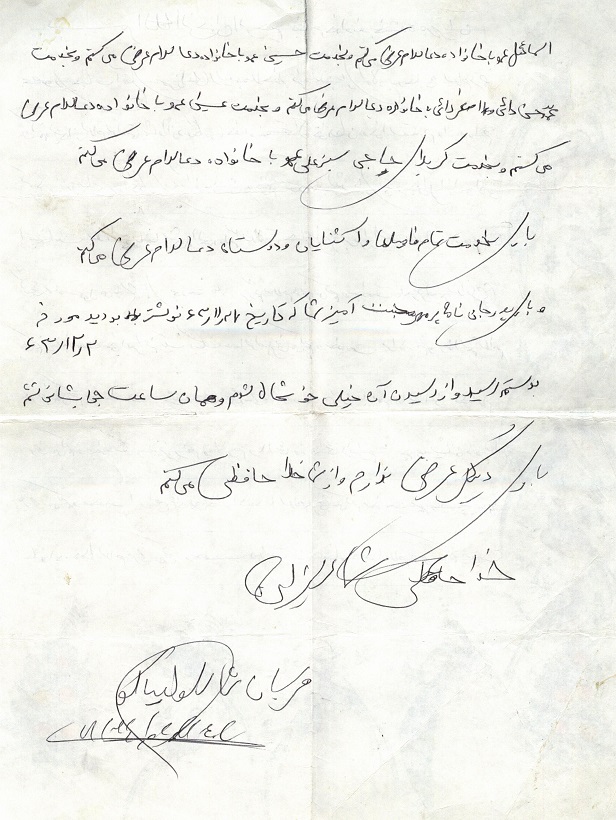 اسماعیل عمو با خانواده دعا سلام عرض می‌کنم و بخدمت حسین عمو با خانواده دعا سلام عرض می‌کنم و بخدمت
محمدحسن دائی و دائی با خانواده دعا سلام عرض می‌کنم و بخدمت عیسی عمو با خانواده دعا سلام عرض
می‌کنم و بخدمت کربلای حاجی سبزعلی عمو با خانواده دعا سلام عرض می‌کنم
باری بخدمت تمام فامیلها و آشنایان و دوستان دعا سلام عرض می‌کنم
و باری پدر جان نامه پر محبت آمیز شما که تاریخ نوشته بودید مورخ
۶۳/۱۲/۲
بدستم رسید و از رسیدن آن خیلی خوشحال شدم و همان ساعت جواباشو نوشتم
باری دیگر عرضی ندارم و از شما خدا حافظی می‌کنم
خدا حافظ شما عزیزان
قربان شما